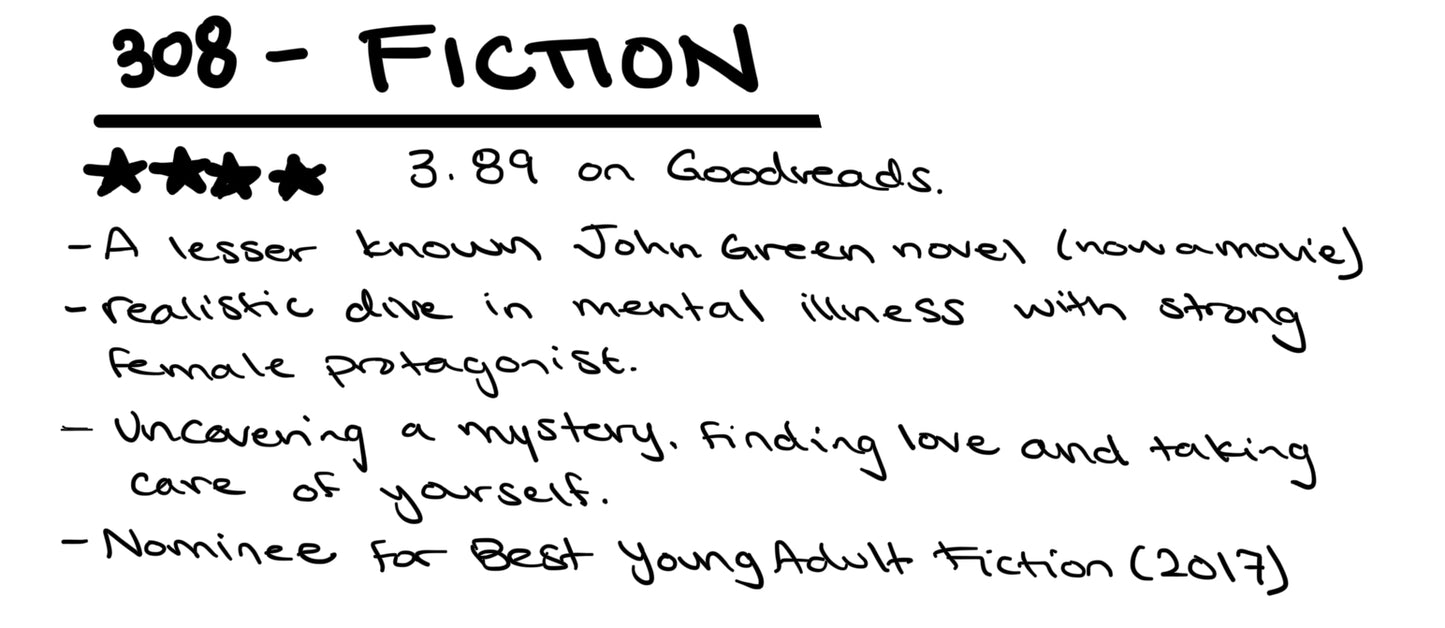 308 - FICTION
★★★★ 3.89 on Goodreads.
- A lesser known John Green novel (now a movie)
- realistic dive in mental illness with strong
female protagonist.
- Uncovering a mystery. Finding love and taking
care of yourself.
- Nominee for Best Young Adult Fiction (2017)